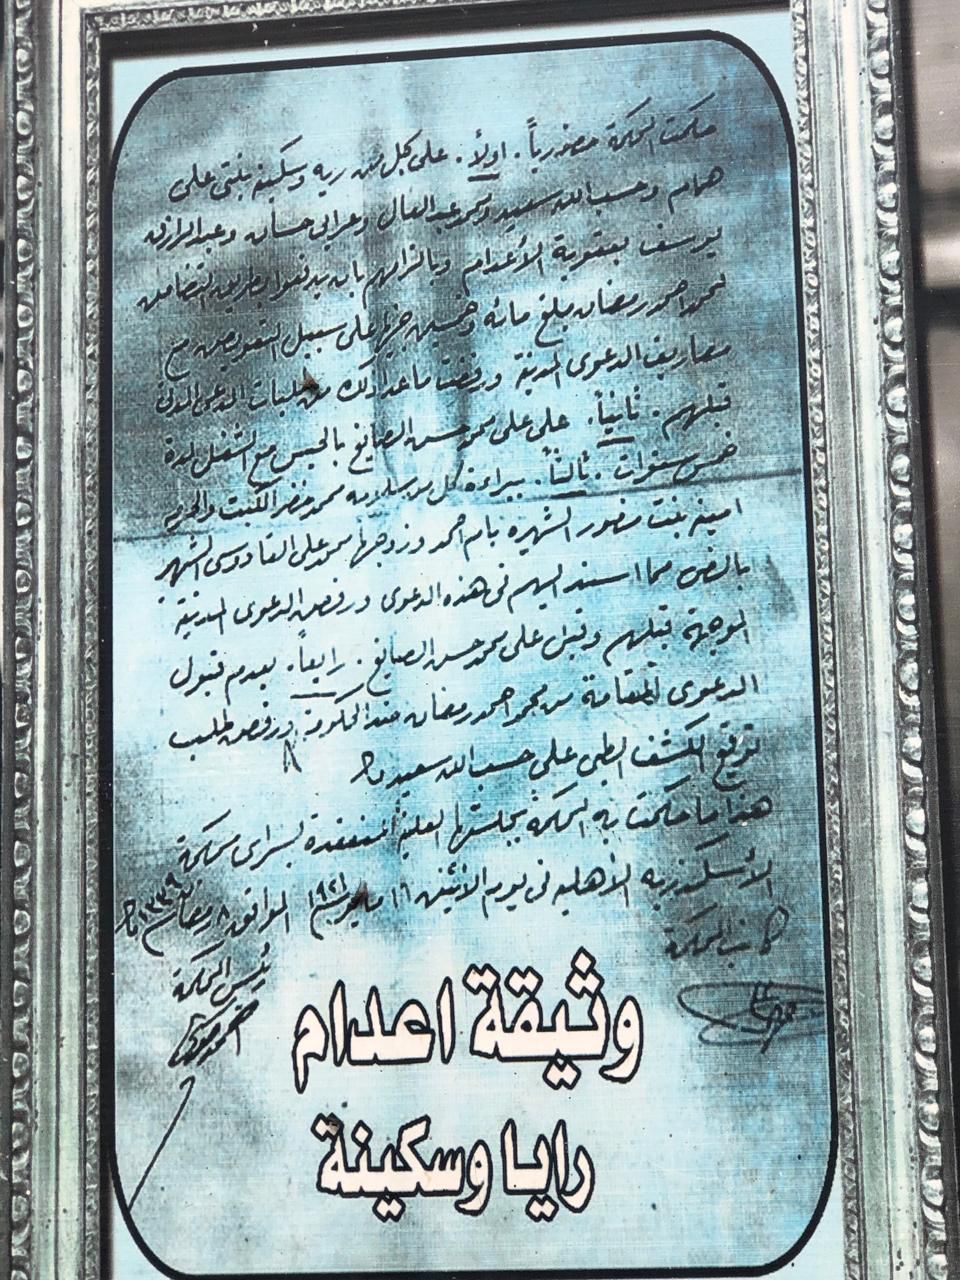 حكمت المحكمة حضورياً. اولاً. على كل من ريه وسكينه بنتى على
همام وحسب الله سعيد ومحمد عبد العال وعرابى حسان وعبد الرازق
يوسف بعقوبة الأعدام وبالزامهم بان يدفعوا بطريق التضامن
لمحمد احمد رمضان مبلغ مائة وخمسين جنيها على سبيل التعويض مع
مصاريف الدعوى المدنية ورفضت ما عدا ذلك من طلبات المدعى المدنى
قبلهم. ثانياً. على على محمد حسن الصايغ بالحبس مع الشغل لمدة
خمس سنوات. ثالثاً. ببراءة كل من سلامه محمد خضر الكبت والحرمه
امينه بنت منصور الشهيره بام احمد وزوجها محمد على القادوسى الشهير
بالنص مما اسند اليهم فى هذه الدعوى ورفض الدعوى المدنية
الموجهة قبلهم وقبل على محمد حسن الصايغ. رابعاً. بعدم قبول
الدعوى المقامة من محمد احمد رمضان ضد الحكومة ورفض طلب
توقيع الكشف الطبى على حسب الله سعيد
هذا ما حكمت به المحكمة بجلستها العلنية المنعقدة بسراى محكمة
الأسكندريه الأهليه فى يوم الاثنين ١٦ مايو سنة ١٩٢١ الموافق ٨ رمضان سنة ١٣٣٩
كاتب المحكمة
رئيس المحكمة
وثيقة اعدام
رايا وسكينة